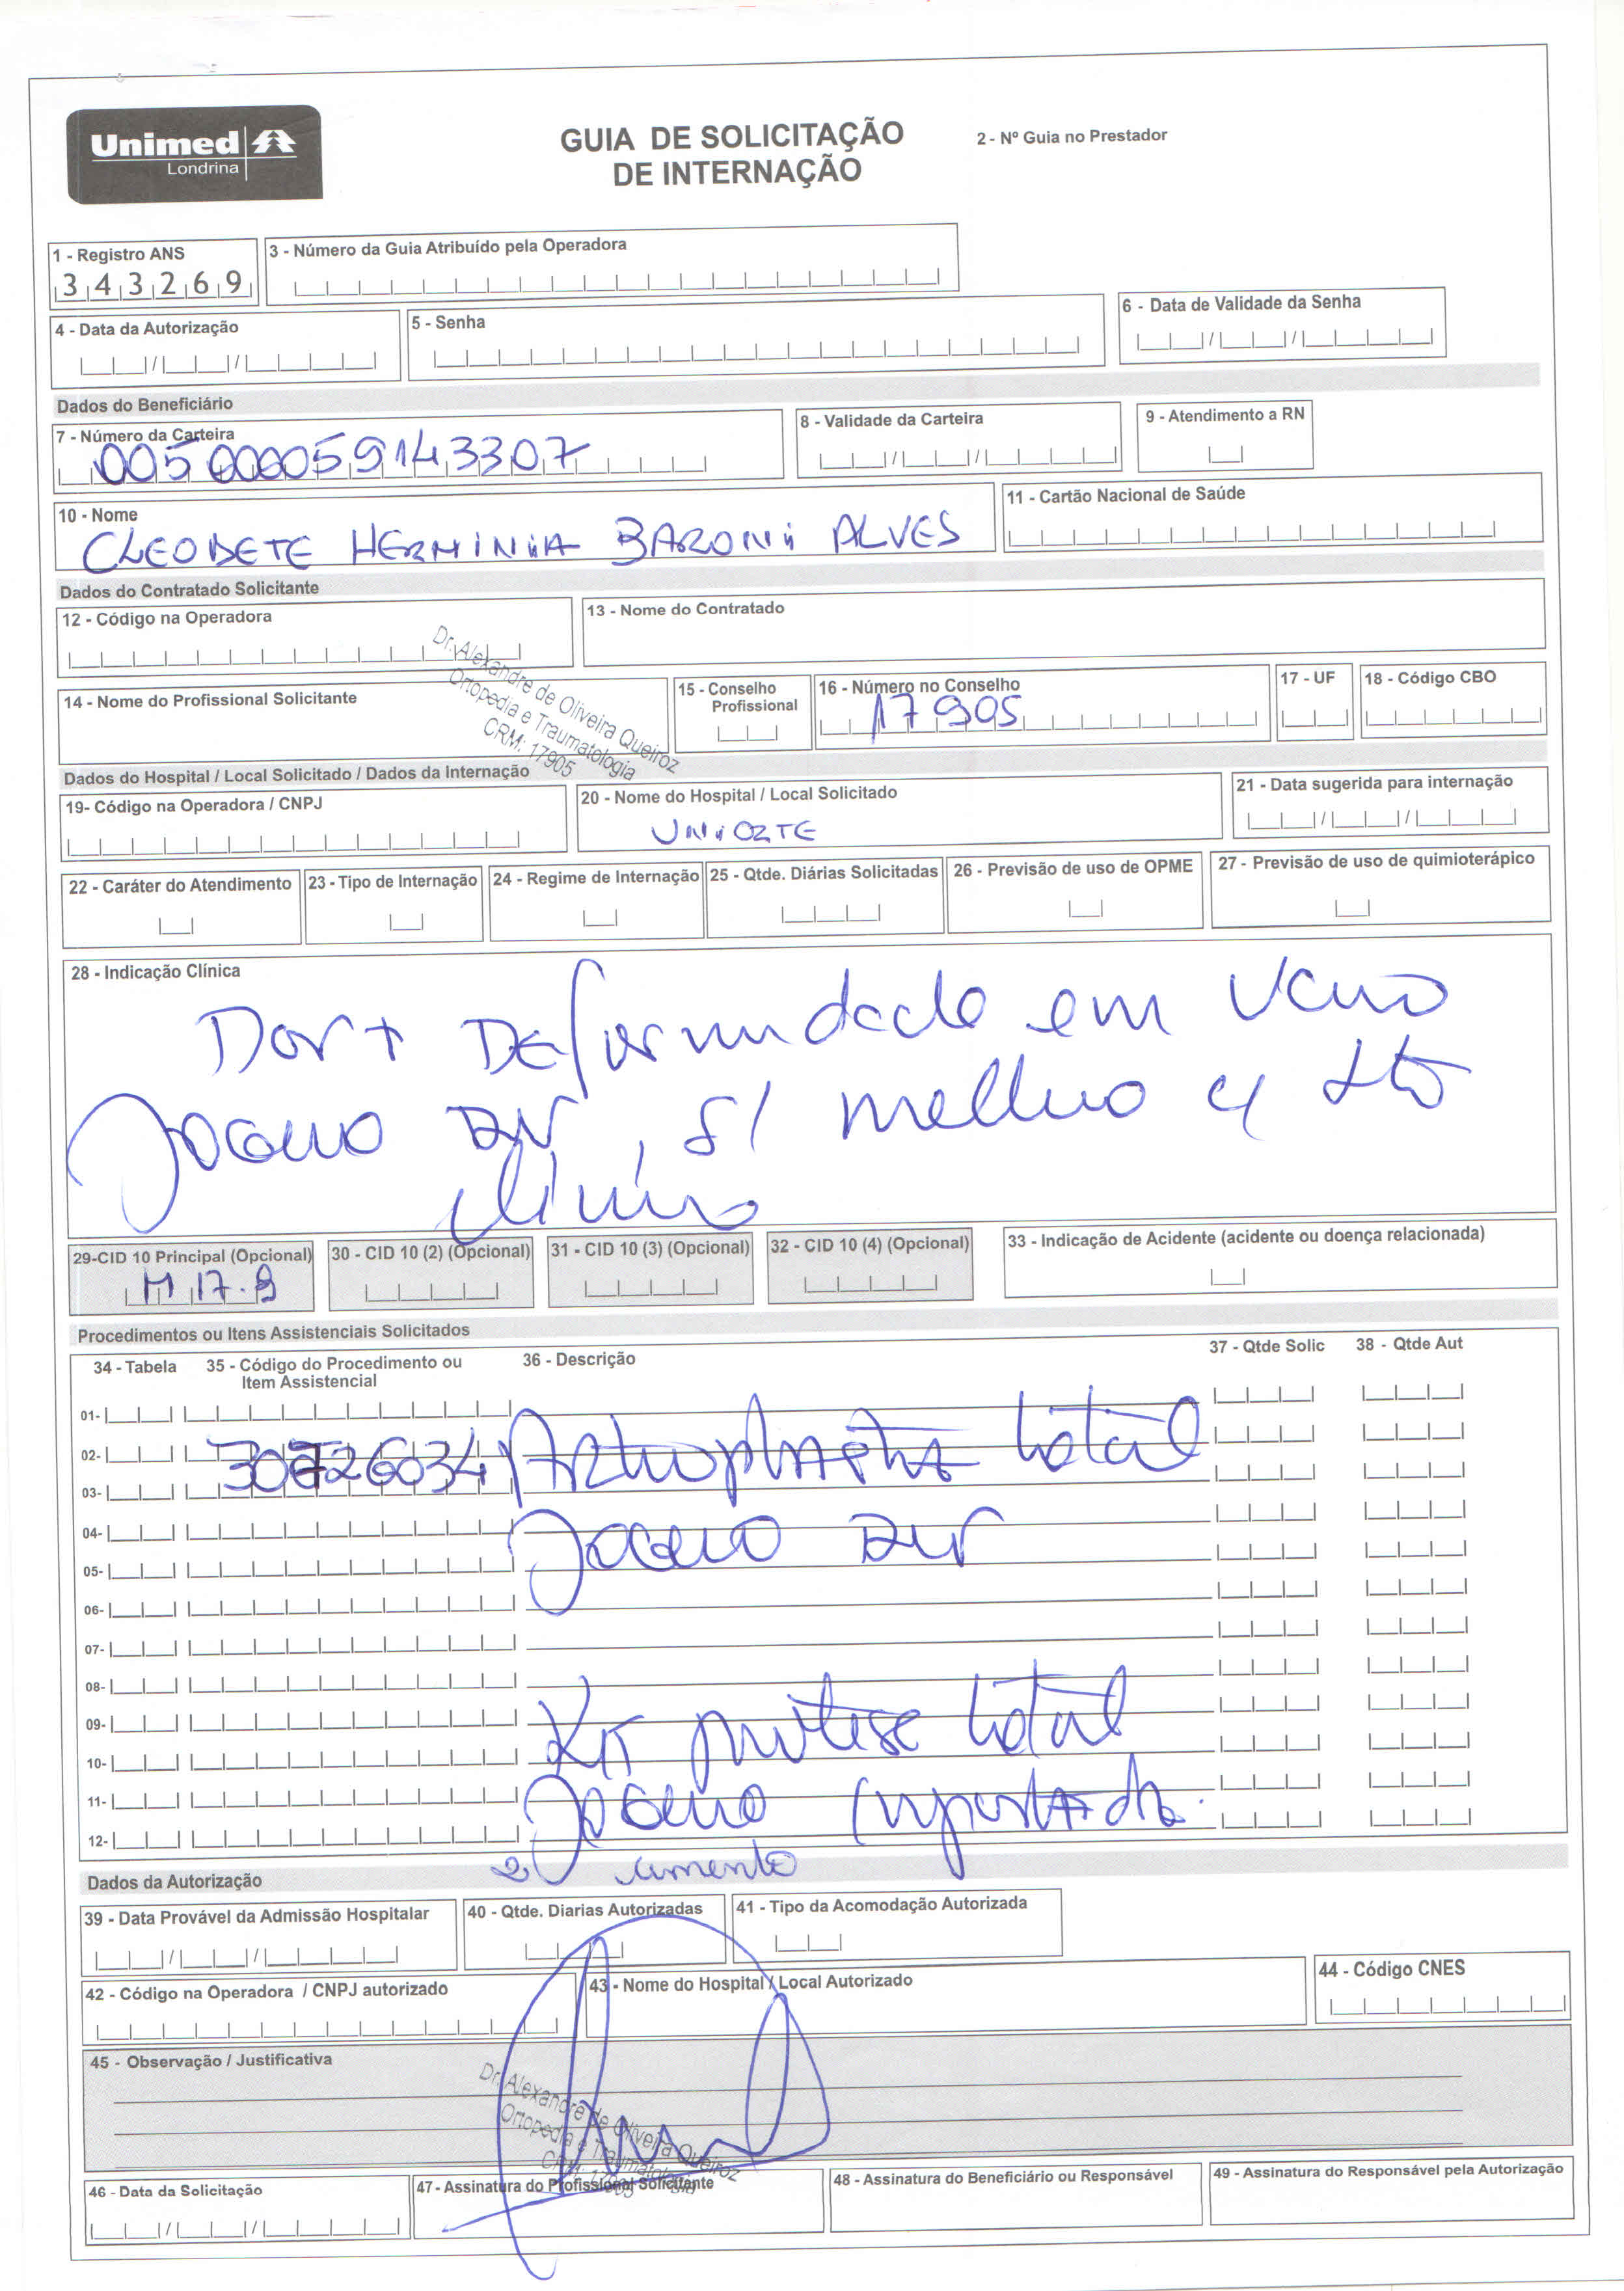 Unimed
Londrina
GUIA DE SOLICITAÇÃO
DE INTERNAÇÃO
2 - Nº Guia no Prestador
1 - Registro ANS
343269
3 - Número da Guia Atribuído pela Operadora
4 - Data da Autorização
5 - Senha
6 - Data de Validade da Senha
Dados do Beneficiário
7 - Número da Carteira
00500005914 3307
8 - Validade da Carteira
9 - Atendimento a RN
10 - Nome
CLEODETE HERMINIA BARONI ALVES
11 - Cartão Nacional de Saúde
Dados do Contratado Solicitante
12 - Código na Operadora
13 - Nome do Contratado
14 - Nome do Profissional Solicitante
Dr. Alexandre de Oliveira Queiroz
Ortopedia e Traumatologia
CRM: 17905
15 - Conselho
Profissional
16 - Número no Conselho
17905
17 - UF
18 - Código CBO
Dados do Hospital / Local Solicitado / Dados da Internação
19- Código na Operadora / CNPJ
20 - Nome do Hospital / Local Solicitado
UNIORTE
21 - Data sugerida para internação
22 - Caráter do Atendimento
23 - Tipo de Internação
24 - Regime de Internação
25 - Qtde. Diárias Solicitadas
26 - Previsão de uso de OPME
27 - Previsão de uso de quimioterápico
28 - Indicação Clínica
Dor + Deformidade em Varo
Joelho Dir, s/ melhora c/ tto
clínico
29-CID 10 Principal (Opcional)
M 17.9
30 - CID 10 (2) (Opcional)
31 - CID 10 (3) (Opcional)
32 - CID 10 (4) (Opcional)
33 - Indicação de Acidente (acidente ou doença relacionada)
Procedimentos ou Itens Assistenciais Solicitados
34 - Tabela
35 - Código do Procedimento ou
Item Assistencial
36 - Descrição
37 - Qtde Solic
38 - Qtde Aut
01-
02- 30726034 Artroplastia total
03-
04- Joelho Dir
05-
06-
07-
08-
09- Kit prótese total
10-
11- Joelho importada.
12-
2 cimento
Dados da Autorização
39 - Data Provável da Admissão Hospitalar
40 - Qtde. Diarias Autorizadas
41 - Tipo da Acomodação Autorizada
42 - Código na Operadora / CNPJ autorizado
43 - Nome do Hospital / Local Autorizado
44 - Código CNES
45 - Observação / Justificativa
Dr. Alexandre de Oliveira Queiroz
Ortopedia e Traumatologia
CRM: 17905
46 - Data da Solicitação
47 - Assinatura do Profissional Solicitante
48 - Assinatura do Beneficiário ou Responsável
49 - Assinatura do Responsável pela Autorização